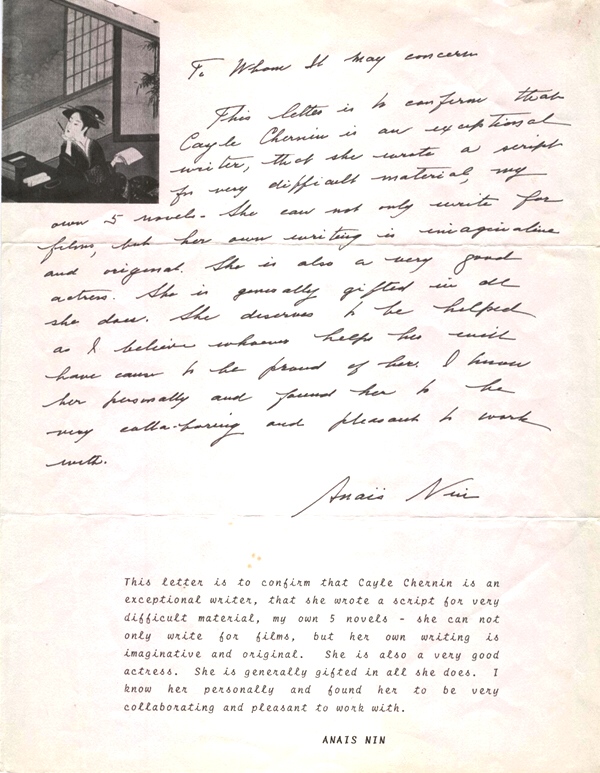 To Whom It May concern
This letter is to confirm that
Cayle Chernin is an exceptional
writer, that she wrote a script
for very difficult material, my
own 5 novels - She can not only write for
films, but her own writing is imaginative
and original. She is also a very good
actress. She is generally gifted in all
she does. She deserves to be helped
as I believe whoever helps her will
have cause to be proud of her. I know
her personally and found her to be
very colla-boring and pleasant to work
with.
Anaïs Nin
This letter is to confirm that Cayle Chernin is an
exceptional writer, that she wrote a script for very
difficult material, my own 5 novels - she can not
only write for films, but her own writing is
imaginative and original. She is also a very good
actress. She is generally gifted in all she does. I
know her personally and found her to be very
collaborating and pleasant to work with.
ANAIS NIN